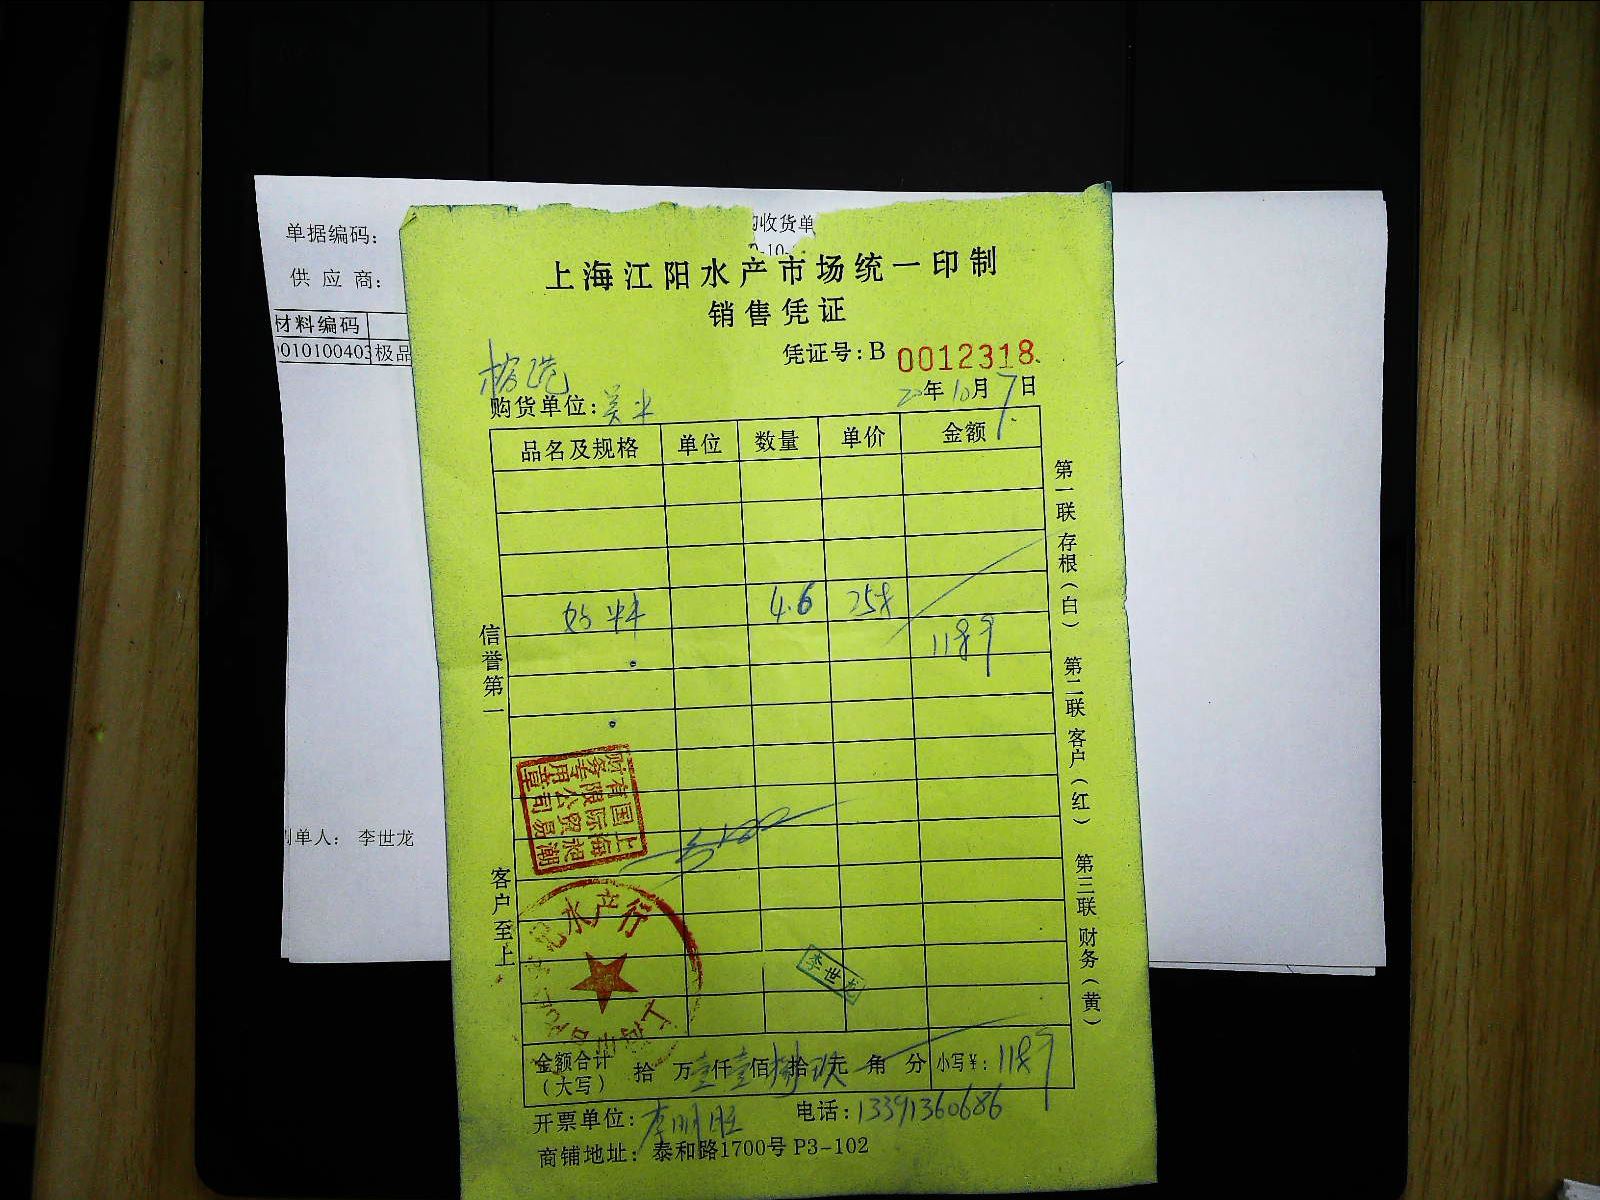 单据编码:
购收货单
供 应 商:
材料编码
0010100403 极品
制单人: 李世龙
上海江阳水产市场统一印制
销售凭证
凭证号:B 0012318
购货单位:
20年10月7日
品名及规格 单位 数量 单价 金额
4.6
信誉第一
客户至上
第一联 存根(白)
第二联 客户(红)
第三联 财务(黄)
上海昶潮国际贸易有限公司财务专用章
记水产行
李世龙
金额合计(大写) 拾 万壹仟壹佰捌拾玖元 角 分 小写¥:1189
开票单位:李明旺 电话:13391360686
商铺地址:泰和路1700号 P3-102